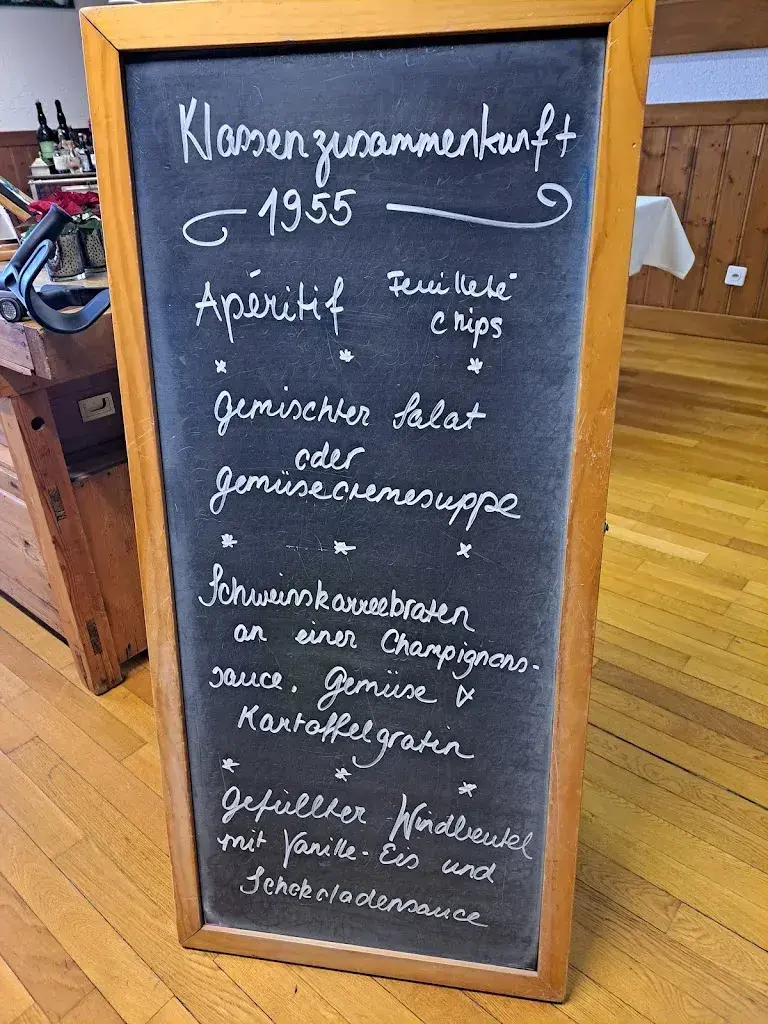 Klassenzusammenkunft
1955
Apéritif Feuilleté
Chips
* * *
Gemischter Salat
oder
Gemüsecremesuppe
* * *
Schweinskarreebraten
an einer Champignons-
sauce. Gemüse &
Kartoffelgratin
* * *
Gefüllter Windbeutel
mit Vanille-Eis und
Schokoladensauce